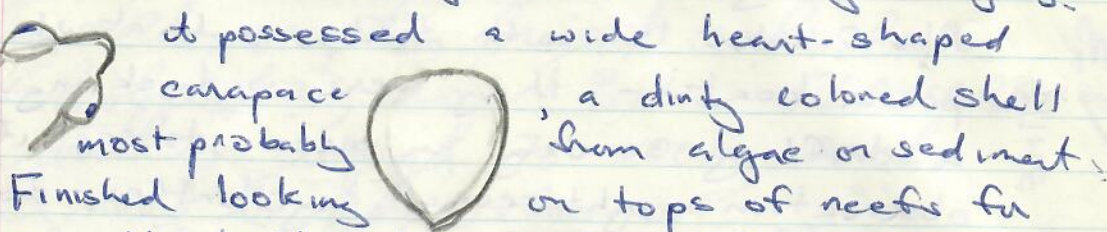 it possessed a wide heart-shaped
carapace, a dirty colored shell
most probably from algae or sediment.
Finished looking on tops of reefs for